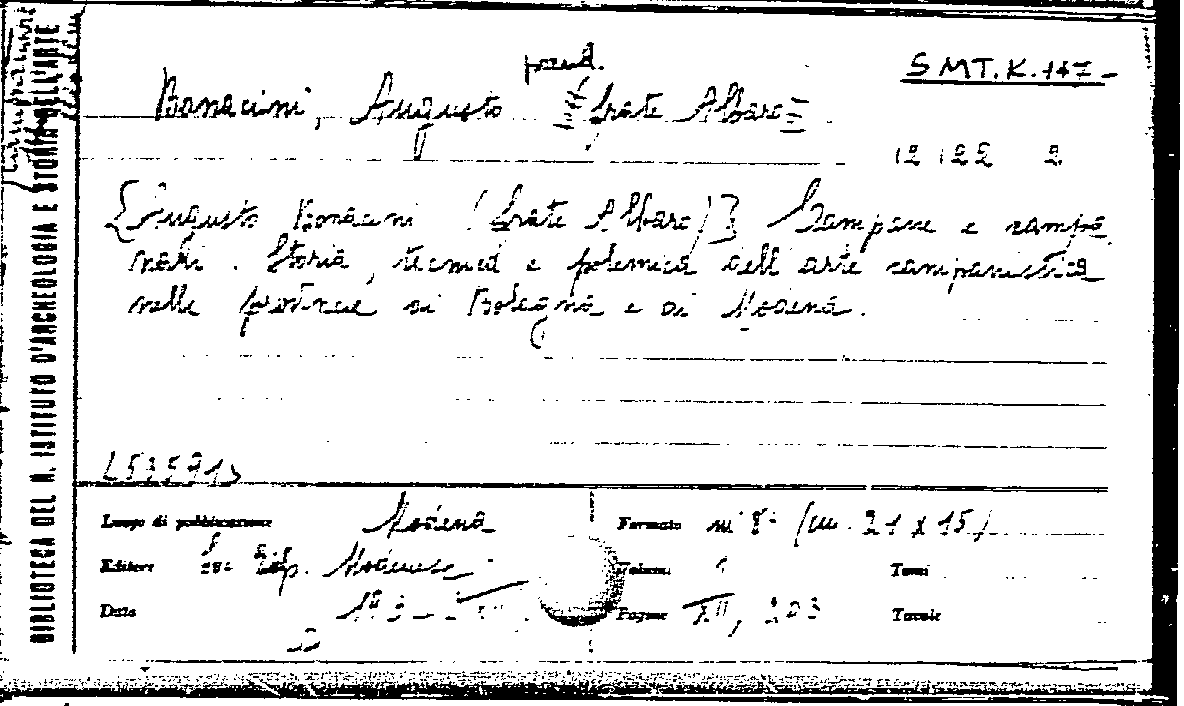 BIBLIOTECA DEL R. ISTITUTO D'ARCHEOLOGIA E STORIA DELL'ARTE
pseud.
SMT.K.147-
Bonacini, Augusto [frate Albaro]
12 122 2
[Augusto Bonacini (frate Albaro)] Campane e campa
nari. Storia, tecnica e polemica dell'arte campanistica
nelle province di Bologna e di Modena.
Luogo di pubblicazione Modena
Formato in 8° (cm. 21 x 15)
Editore Soc. Tip. Modenese
Volumi 1
Tomi
Data
Pagine XII, 203
Tavole